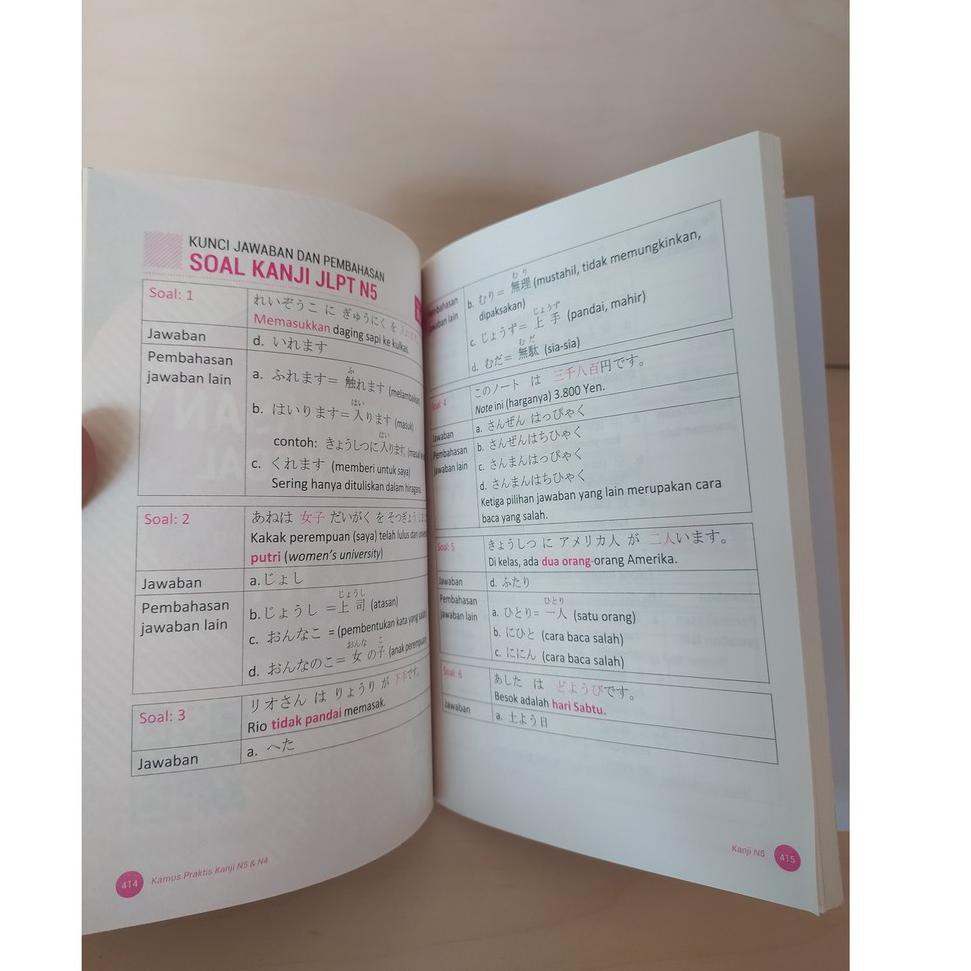 KUNCI JAWABAN DAN PEMBAHASAN
SOAL KANJI JLPT N5
Soal: 1
れいぞうこ に ぎゅうにく を
Memasukkan daging sapi ke kulkas.
Jawaban
d. いれます
Pembahasan
jawaban lain
ふ
a. ふれます= 触れます (melambaikan
はい
b. はいります=入ります (masuk)
はい
contoh: きょうしつに入ります
c. くれます (memberi untuk saya)
Sering hanya dituliskan dalam hiragana
Soal: 2
あねは 女子 だいがく を そつぎょう
Kakak perempuan (saya) telah lulus dari
putri (women's university)
Jawaban
a.じょし
Pembahasan
jawaban lain
じょうし
b.じょうし =上司 (atasan)
c. おんなこ = (pembentukan kata yang
おんな こ
d. おんなのこ= 女の子 (anak perempuan
Soal: 3
リオさん は りょうり が 下手です。
Rio tidak pandai memasak.
Jawaban
a. へた
414
Kamus Praktis Kanji N5 & N4
Pembahasan
jawaban lain
むり
b. むり= 無理 (mustahil, tidak memungkinkan,
dipaksakan)
じょうず
c. じょうず= 上手 (pandai, mahir)
むだ
d. むだ= 無駄 (sia-sia)
Soal: 4
このノート は 三千八百円です。
Note ini (harganya) 3.800 Yen.
Jawaban
a. さんぜん はっぴゃく
Pembahasan
jawaban lain
b. さんぜんはちひゃく
c. さんまんはっぴゃく
d. さんまんはちひゃく
Ketiga pilihan jawaban yang lain merupakan cara
baca yang salah.
Soal: 5
きょうしつ に アメリカ人 が 二人います。
Di kelas, ada dua orang orang Amerika.
Jawaban
d. ふたり
Pembahasan
jawaban lain
ひとり
a. ひとり= 一人 (satu orang)
b. にひと (cara baca salah)
c. ににん (cara baca salah)
Soal: 6
あした は どようびです。
Besok adalah hari Sabtu.
Jawaban
a. 土よう日
Kanji N5
415